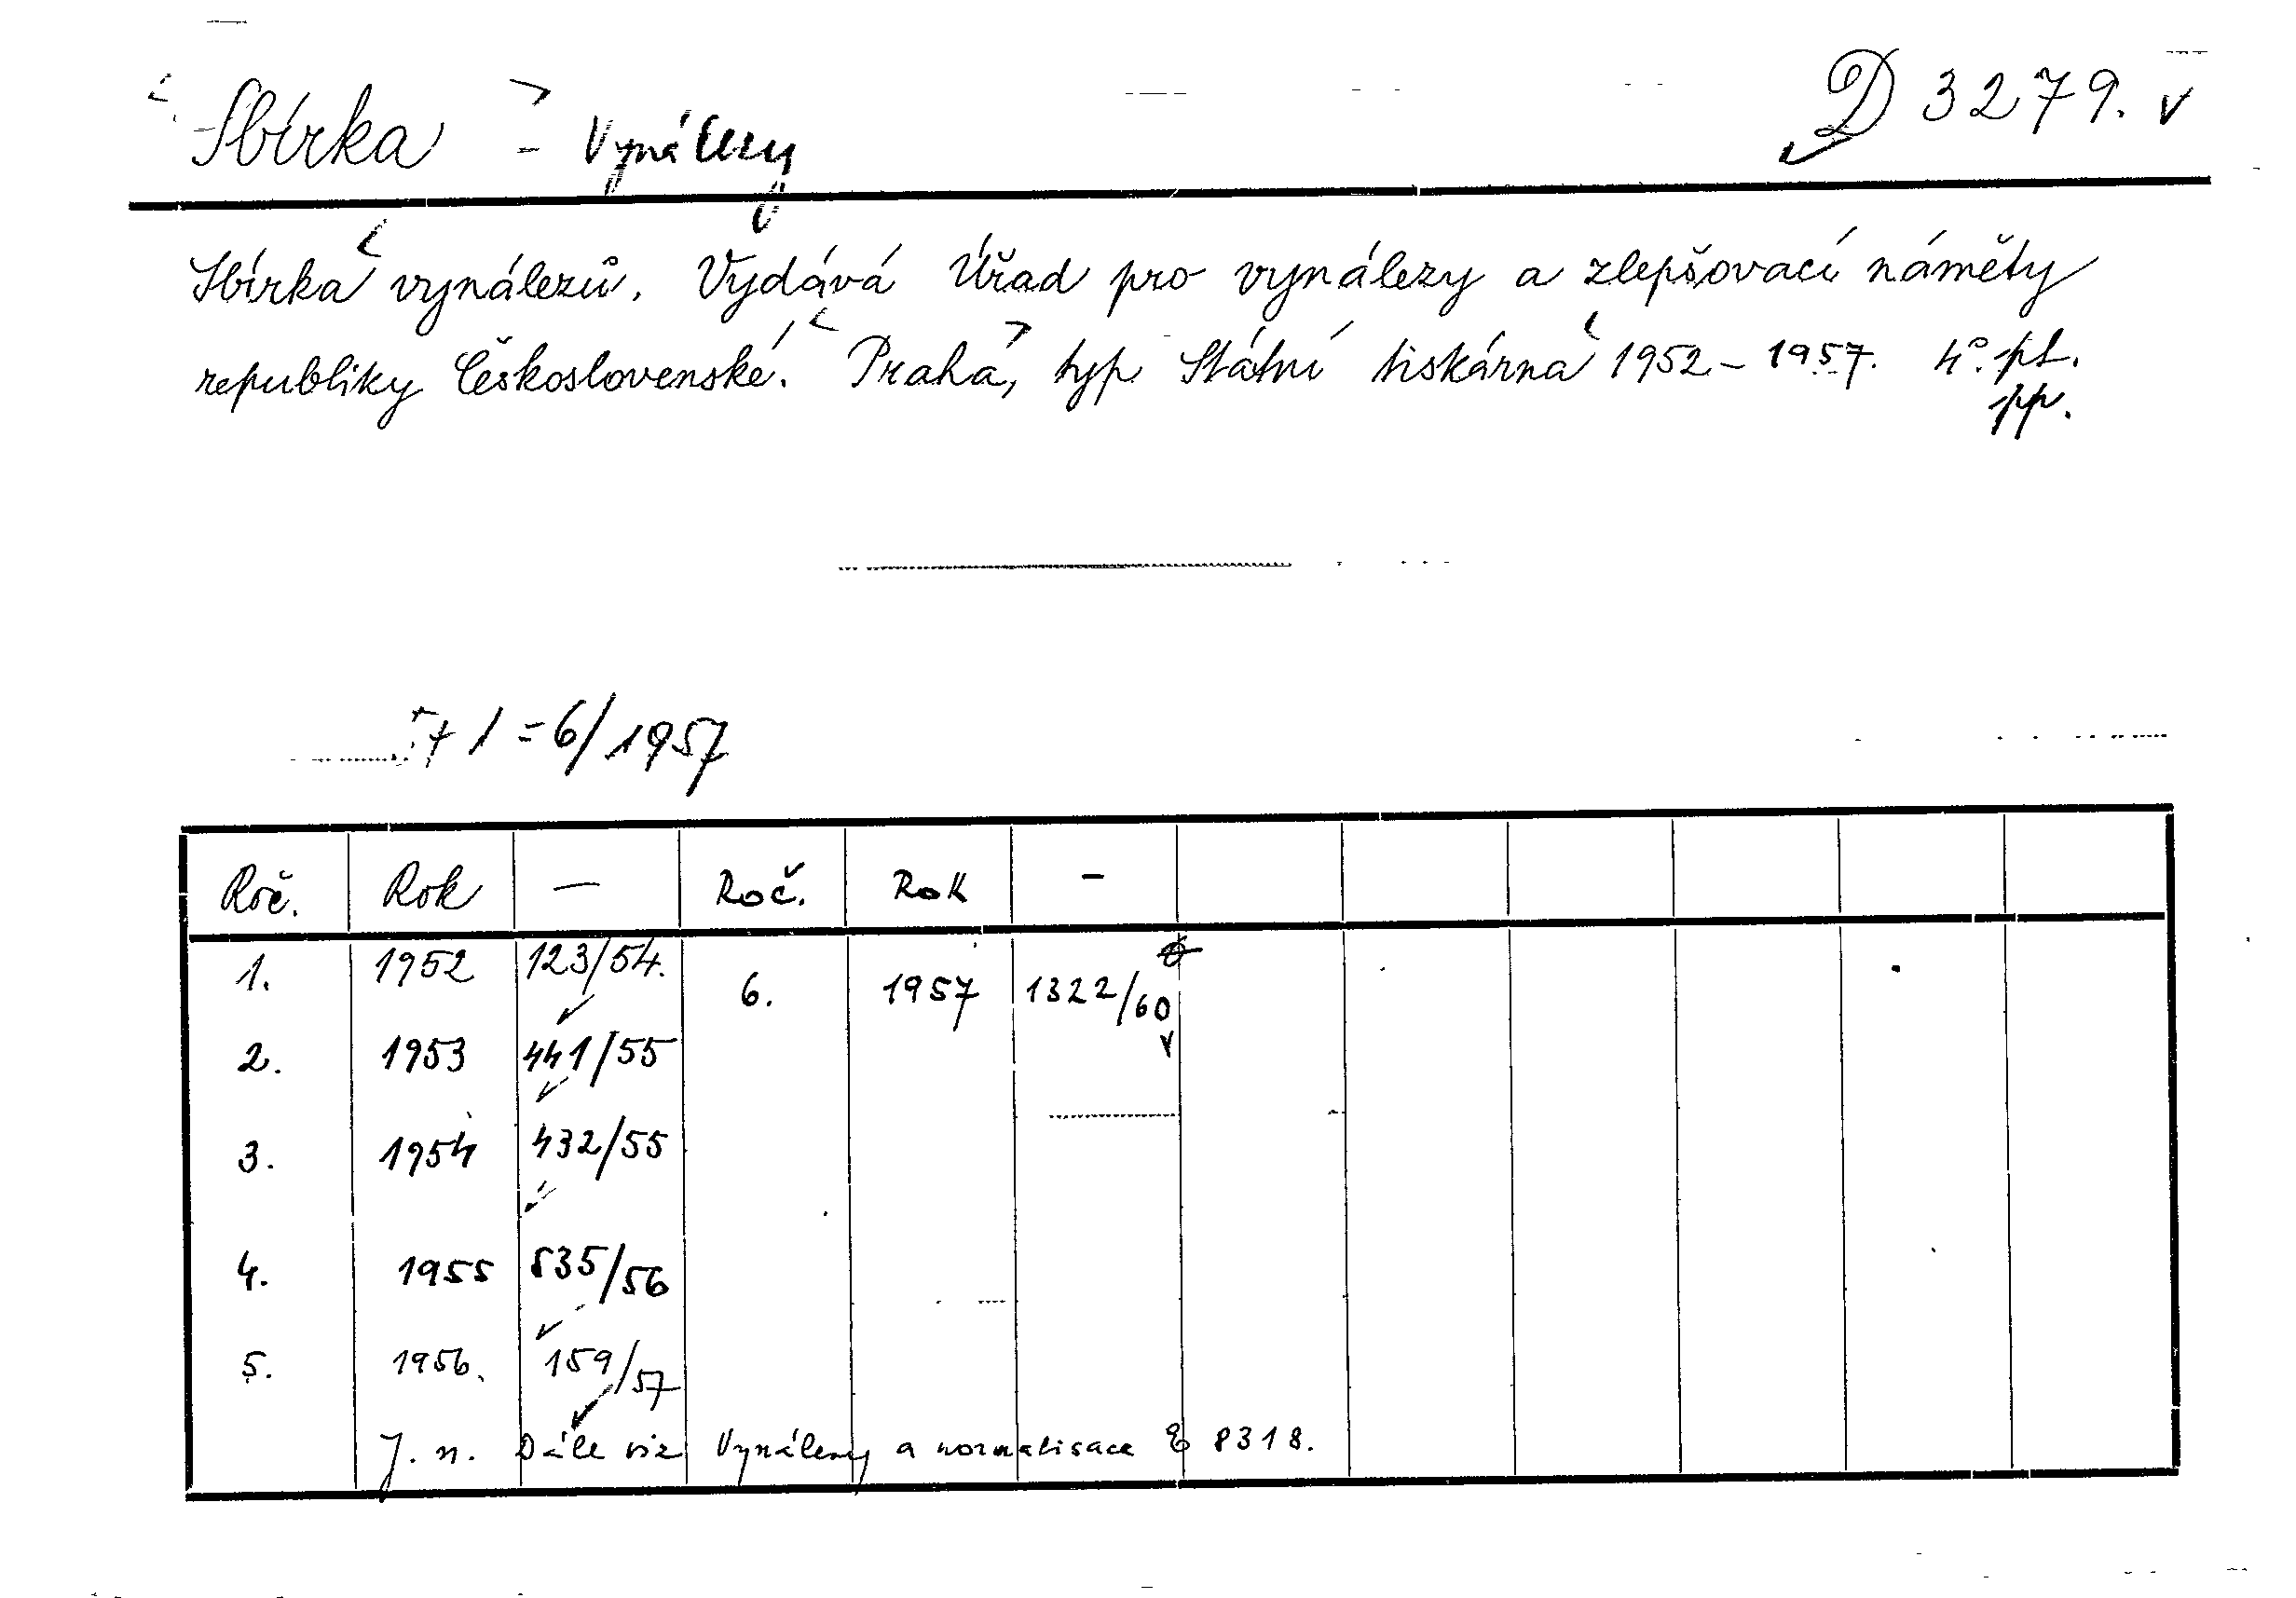 Sbírka - Vynálezy D 3279. v
Sbírka vynálezů. Vydává Úřad pro vynálezy a zlepšovací náměty
republiky Československé. Praha, typ Státní tiskárna 1952 - 1957. 4°. pt.
pp.
+ 1 = 6/1957
Roč. Rok — Roč. Rok -
1. 1952 123/54. 6. 1957 1322/60
2. 1953 441/55
3. 1954 432/55
4. 1955 535/56
5. 1956. 159/57
J. n. Dále viz Vynálezy a normalisace 8318.